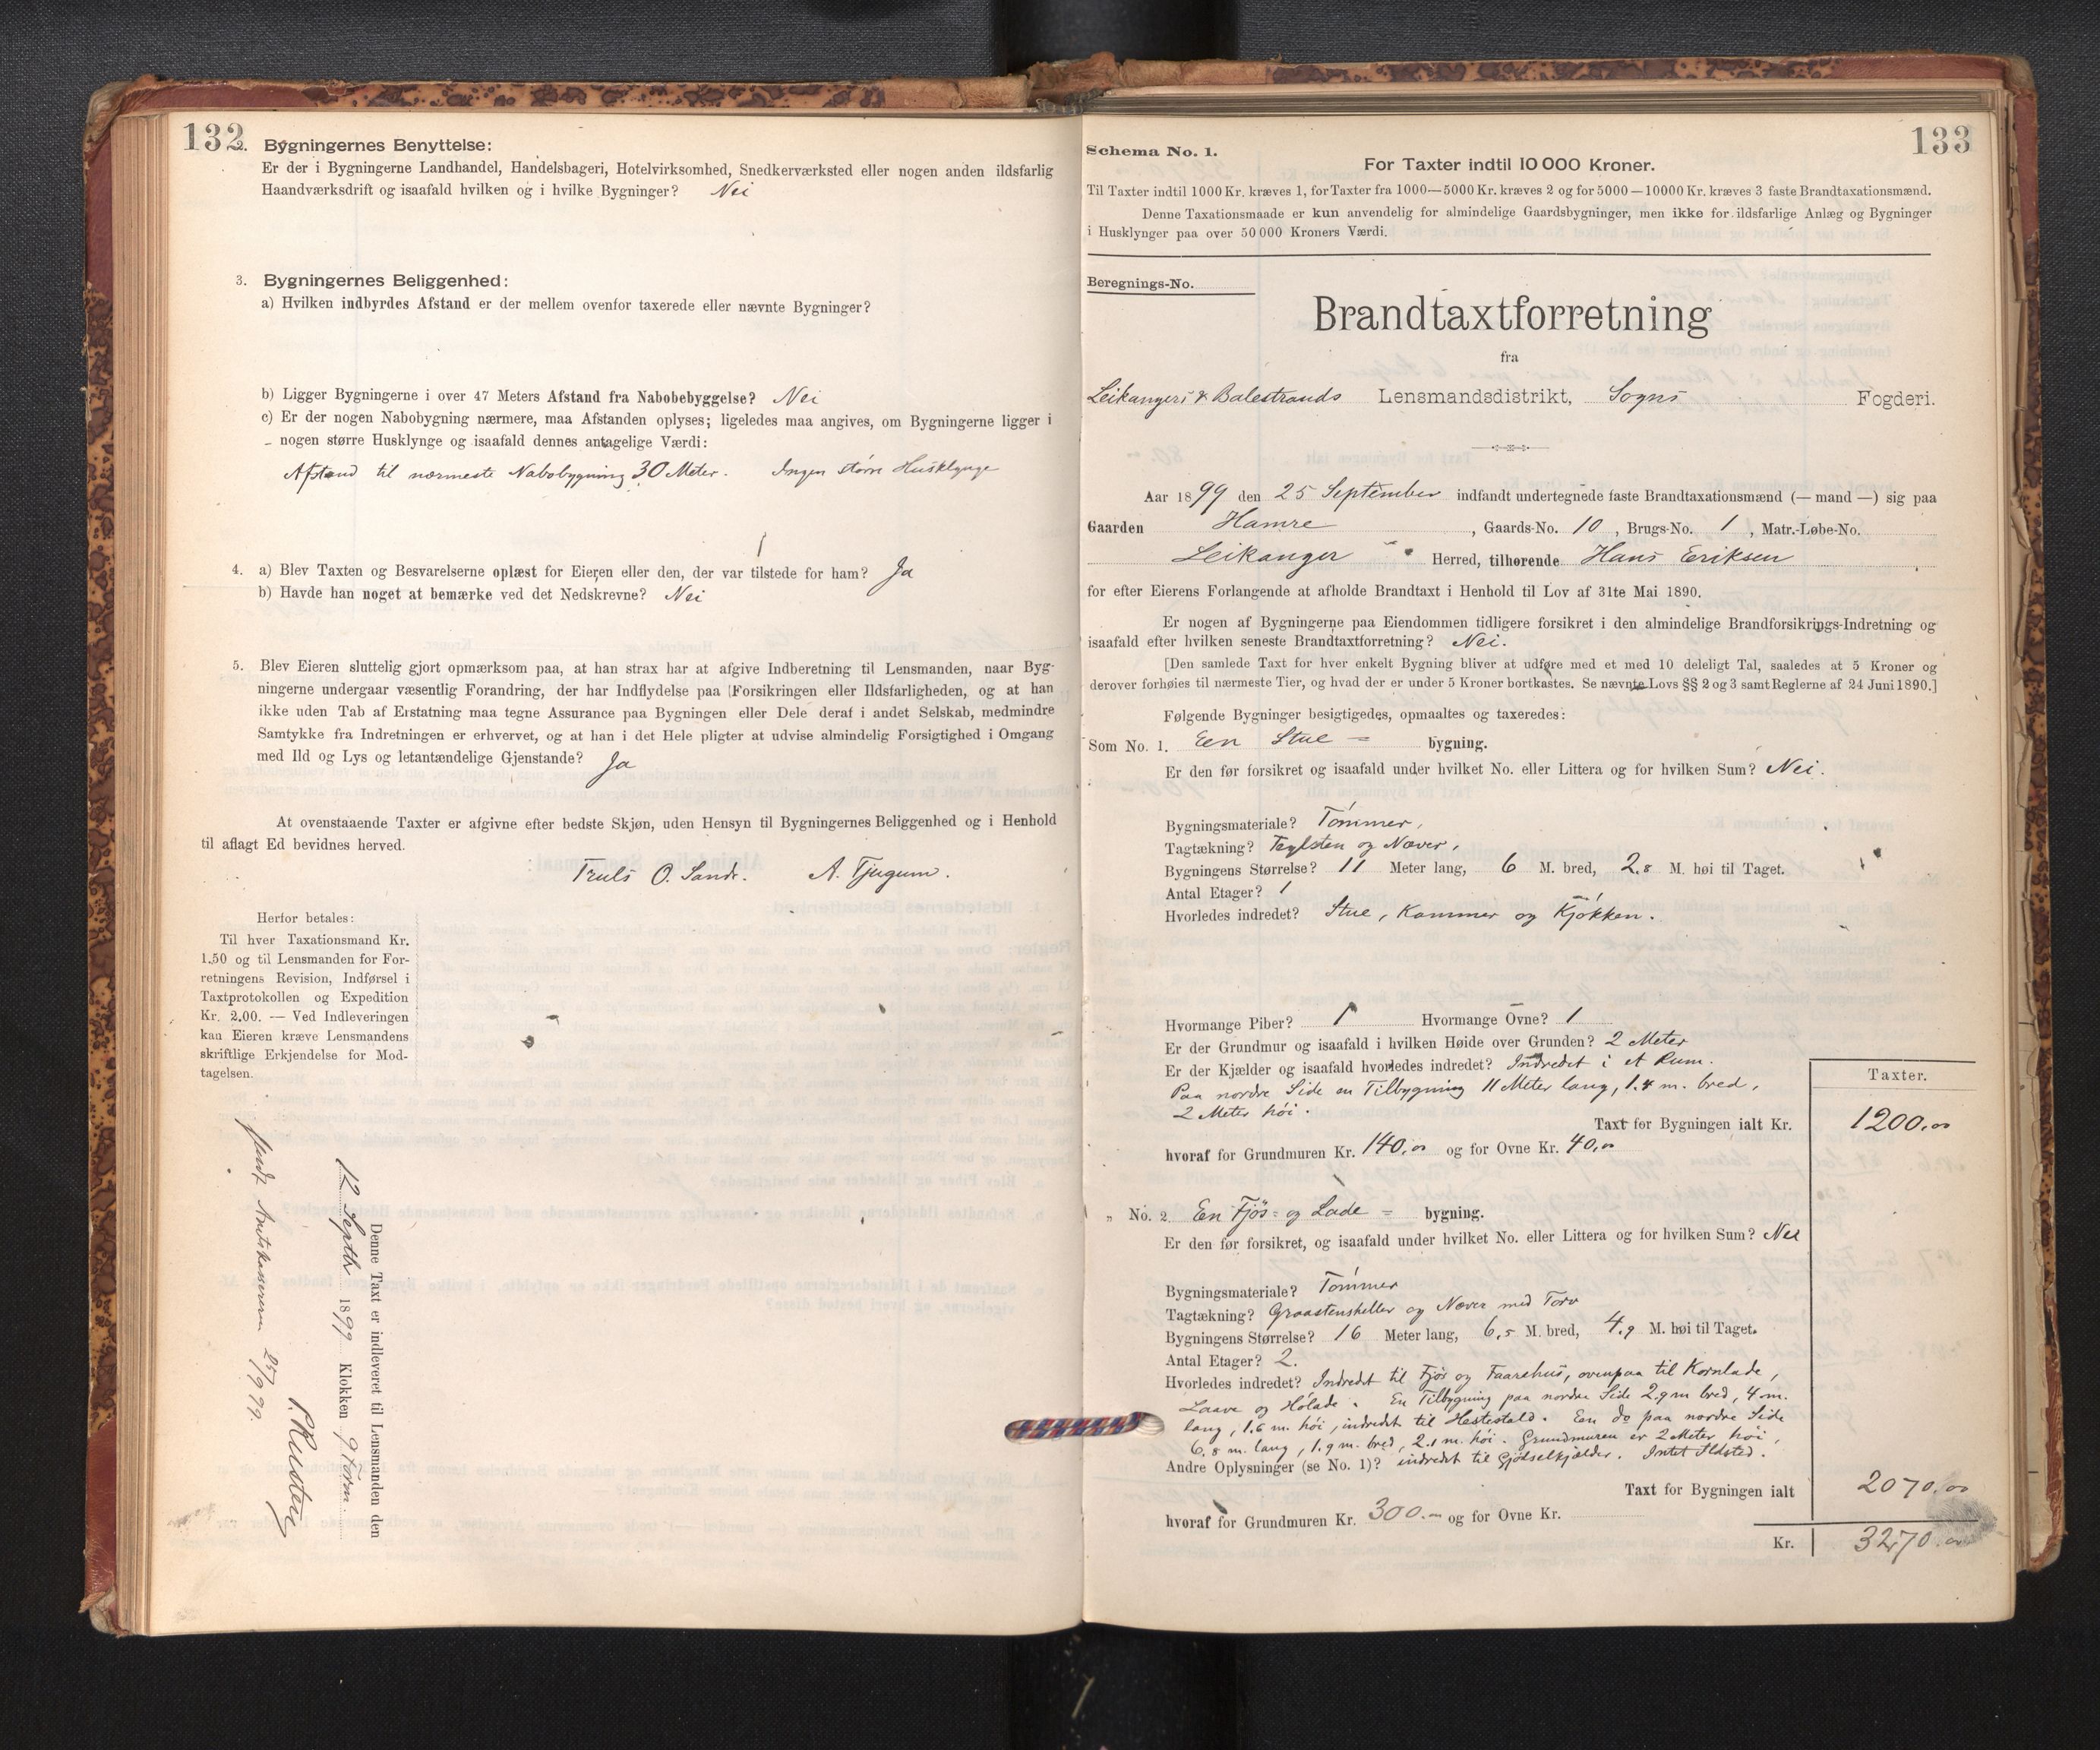 132
2. Bygningernes Benyttelse:
Er der i Bygningerne Landhandel, Handelsbageri, Hotelvirksomhed, Snedkerværksted eller nogen anden ildsfarlig
Haandværksdrift og isaafald hvilken og i hvilke Bygninger? Nei
3. Bygningernes Beliggenhed:
a) Hvilken indbyrdes Afstand er der mellem ovenfor taxerede eller nævnte Bygninger?
b) Ligger Bygningerne i over 47 Meters Afstand fra Nabobebyggelse? Nei
c) Er der nogen Nabobygning nærmere, maa Afstanden oplyses; ligeledes maa angives, om Bygningerne ligger i
nogen større Husklynge og isaafald dennes antagelige Værdi:
Afstand til nærmeste Nabobygning 30 Meter. Ingen större Husklynge
4. a) Blev Taxten og Besvarelserne oplæst for Eieren eller den, der var tilstede for ham? Ja
b) Havde han noget at bemærke ved det Nedskrevne? Nei
5. Blev Eieren sluttelig gjort opmærksom paa, at han strax har at afgive Indberetning til Lensmanden, naar Byg-
ningerne undergaar væsentlig Forandring, der har Indflydelse paa Forsikringen eller Ildsfarligheden, og at han
ikke uden Tab af Erstatning maa tegne Assurance paa Bygningen eller Dele deraf i andet Selskab, medmindre
Samtykke fra Indretningen er erhvervet, og at han i det Hele pligter at udvise almindelig Forsigtighed i Omgang
med Ild og Lys og letantændelige Gjenstande? Ja
At ovenstaaende Taxter er afgivne efter bedste Skjøn, uden Hensyn til Bygningernes Beliggenhed og i Henhold
til aflagt Ed bevidnes herved.
Truls O. Sande. A. Tjugum.
Herfor betales:
Til hver Taxationsmand Kr.
1.50 og til Lensmanden for For-
retningens Revision, Indførsel i
Taxtprotokollen og Expedition
Kr. 2.00. — Ved Indleveringen
kan Eieren kræve Lensmandens
skriftlige Erkjendelse for Mod-
tagelsen.
Denne Taxt er indleveret til Lensmanden den
12 Septbr 1899 Klokken 9 Form.
Sendt Amtskassereren 25/9 99.
P. Rusten
133
Schema No. 1.
For Taxter indtil 10 000 Kroner.
Til Taxter indtil 1000 Kr. kræves 1, for Taxter fra 1000—5000 Kr. kræves 2 og for 5000—10000 Kr. kræves 3 faste Brandtaxationsmænd.
Denne Taxationsmaade er kun anvendelig for almindelige Gaardsbygninger, men ikke for ildsfarlige Anlæg og Bygninger
i Husklynger paa over 50 000 Kroners Værdi.
Beregnings-No.
Brandtaxtforretning
fra
Leikangers & Balestrands Lensmandsdistrikt, Sogns Fogderi.
Aar 1899 den 25 September indfandt undertegnede faste Brandtaxationsmænd (— mand —) sig paa
Gaarden Hamre, Gaards-No. 10, Brugs-No. 1, Matr.-Løbe-No.
Leikanger Herred, tilhørende Hans Eriksen
for efter Eierens Forlangende at afholde Brandtaxt i Henhold til Lov af 31te Mai 1890.
Er nogen af Bygningerne paa Eiendommen tidligere forsikret i den almindelige Brandforsikrings-Indretning og
isaafald efter hvilken seneste Brandtaxtforretning? Nei.
[Den samlede Taxt for hver enkelt Bygning bliver at udføre med et med 10 deleligt Tal, saaledes at 5 Kroner og
derover forhøies til nærmeste Tier, og hvad der er under 5 Kroner bortkastes. Se nævnte Lovs §§ 2 og 3 samt Reglerne af 24 Juni 1890.]
Følgende Bygninger besigtigedes, opmaaltes og taxeredes:
Som No. 1. Een Stue = bygning.
Er den før forsikret og isaafald under hvilket No. eller Littera og for hvilken Sum? Nei.
Bygningsmateriale? Tömmer,
Tagtækning? Teglsten og Næver,
Bygningens Størrelse? 11 Meter lang, 6 M. bred, 2.8 M. høi til Taget.
Antal Etager? 1
Hvorledes indredet? Stue, Kammer og Kjökken.
Hvormange Piber? 1 Hvormange Ovne? 1
Er der Grundmur og isaafald i hvilken Høide over Grunden? 2 Meter
Er der Kjælder og isaafald hvorledes indredet? Indredet i et Rum.
Paa nordre Side en Tilbygning 11 Meter lang, 1.4 m. bred,
2 Meter höi.
Taxter.
Taxt for Bygningen ialt Kr. 1200,00
hvoraf for Grundmuren Kr. 140,00 og for Ovne Kr. 40,00
„ No. 2 En Fjös= og Lade = bygning.
Er den før forsikret, og isaafald under hvilket No. eller Littera og for hvilken Sum? Nei
Bygningsmateriale? Tömmer
Tagtækning? Graastensheller og Næver med Torv
Bygningens Størrelse? 16 Meter lang, 6,5 M. bred, 4,9 M. høi til Taget.
Antal Etager? 2.
Hvorledes indredet? Indredet til Fjös og Faarehus, ovenpaa til Kornlade,
Laave og Hölade. En Tilbygning paa nordre Side 2,9 m bred, 4 m.
lang, 1.6 m. höi, indredet til Hestestald. Een do paa nordre Side
6,8 m. lang, 1.9 m. bred, 2.1 m. höi. Grundmuren er 2 Meter höi,
Andre Oplysninger (se No. 1)? indredet til Gjödselkjælder. Intet Ildsted.
Taxt for Bygningen ialt 2070,00
hvoraf for Grundmuren Kr. 300.00 og for Ovne Kr.
Kr. 3270.00